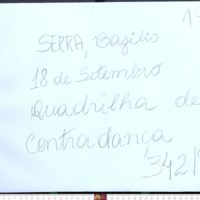 SERRA, Bazilio
18 de Setembro
Quadrilha de
Contradança
342/